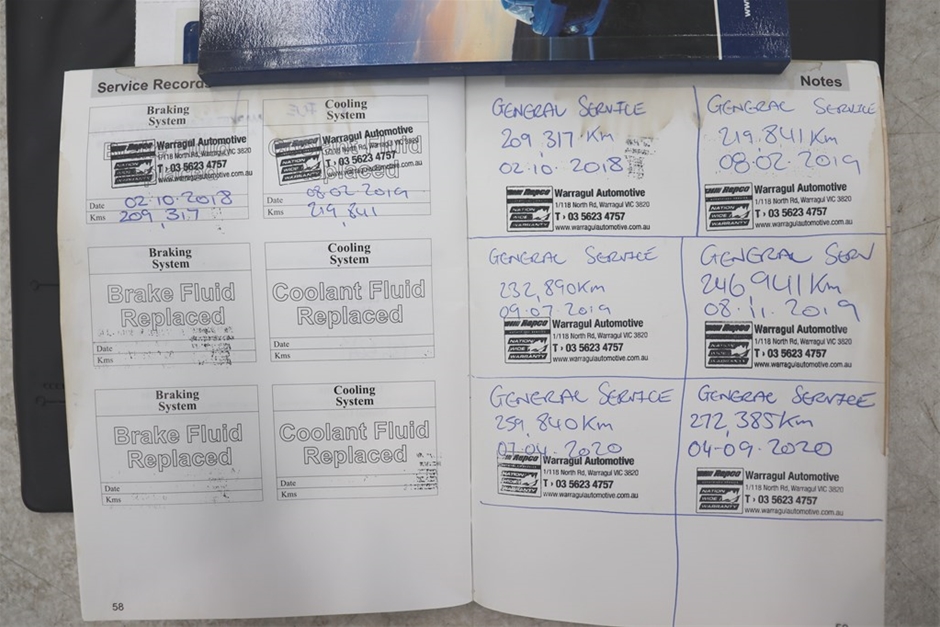 www.
Service Records
Braking
System
Warragul Automotive
1/118 North Rd, Warragul VIC 3820
T › 03 5623 4757
www.warragulautomotive.com.au
Date 02.10.2018
Kms 209,317
Cooling
System
Warragul Automotive
1/118 North Rd, Warragul VIC 3820
T › 03 5623 4757
www.warragulautomotive.com.au
Date 08.02.2019
Kms 219,841
Braking
System
Brake Fluid
Replaced
Date
Kms
Cooling
System
Coolant Fluid
Replaced
Date
Kms
Braking
System
Brake Fluid
Replaced
Date
Kms
Cooling
System
Coolant Fluid
Replaced
Date
Kms
58
Notes
GENERAL SERVICE
209,317 Km
02.10.2018
Repco
NATION
WIDE
WARRANTY
Warragul Automotive
1/118 North Rd, Warragul VIC 3820
T › 03 5623 4757
www.warragulautomotive.com.au
GENERAL SERVICE
219,841 Km
08.02.2019
Repco
NATION
WIDE
WARRANTY
Warragul Automotive
1/118 North Rd, Warragul VIC 3820
T › 03 5623 4757
www.warragulautomotive.com.au
GENERAL SERVICE
232,890 Km
09.07.2019
Repco
NATION
WIDE
WARRANTY
Warragul Automotive
1/118 North Rd, Warragul VIC 3820
T › 03 5623 4757
www.warragulautomotive.com.au
GENERAL SERV
246,941 Km
08.11.2019
Repco
NATION
WIDE
WARRANTY
Warragul Automotive
1/118 North Rd, Warragul VIC 3820
T › 03 5623 4757
www.warragulautomotive.com.au
GENERAL SERVICE
259,840 Km
07.04.2020
Repco
NATION
WIDE
WARRANTY
Warragul Automotive
1/118 North Rd, Warragul VIC 3820
T › 03 5623 4757
www.warragulautomotive.com.au
GENERAL SERVICE
272,385 Km
04-09-2020
Repco
NATION
WIDE
WARRANTY
Warragul Automotive
1/118 North Rd, Warragul VIC 3820
T › 03 5623 4757
www.warragulautomotive.com.au